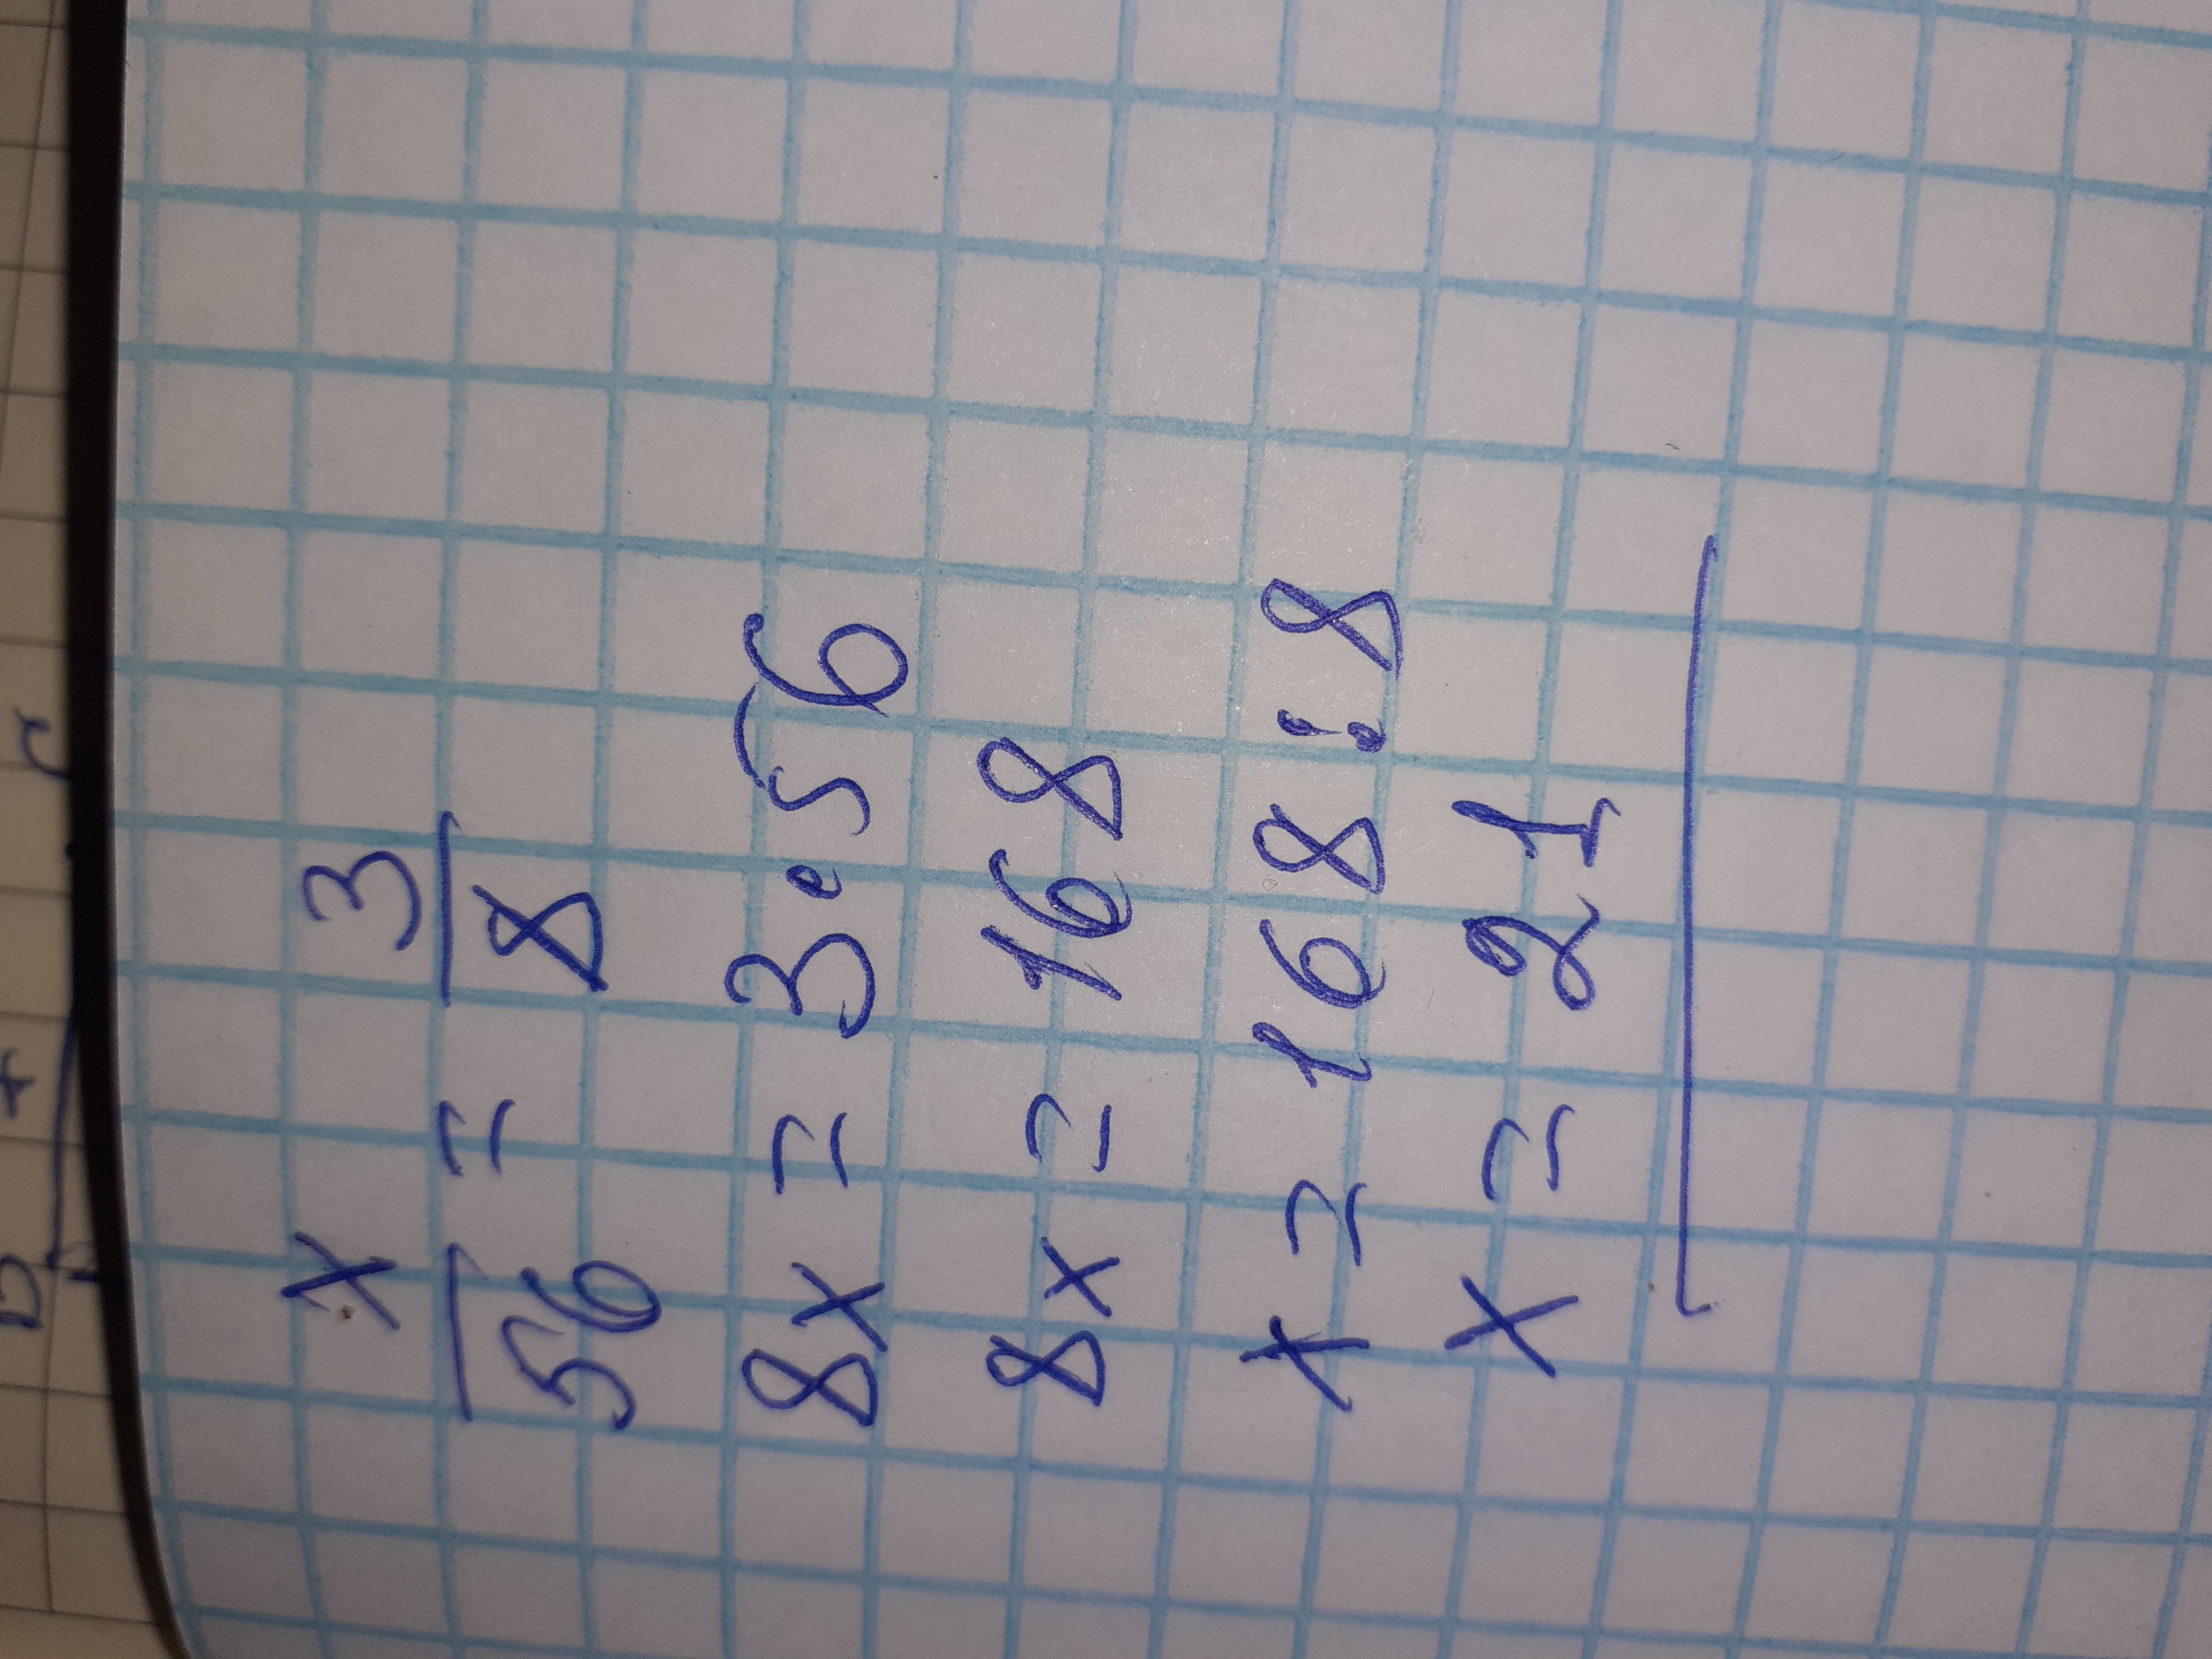 x/56 = 3/8
8x = 3·56
8x = 168
x = 168:8
x = 21